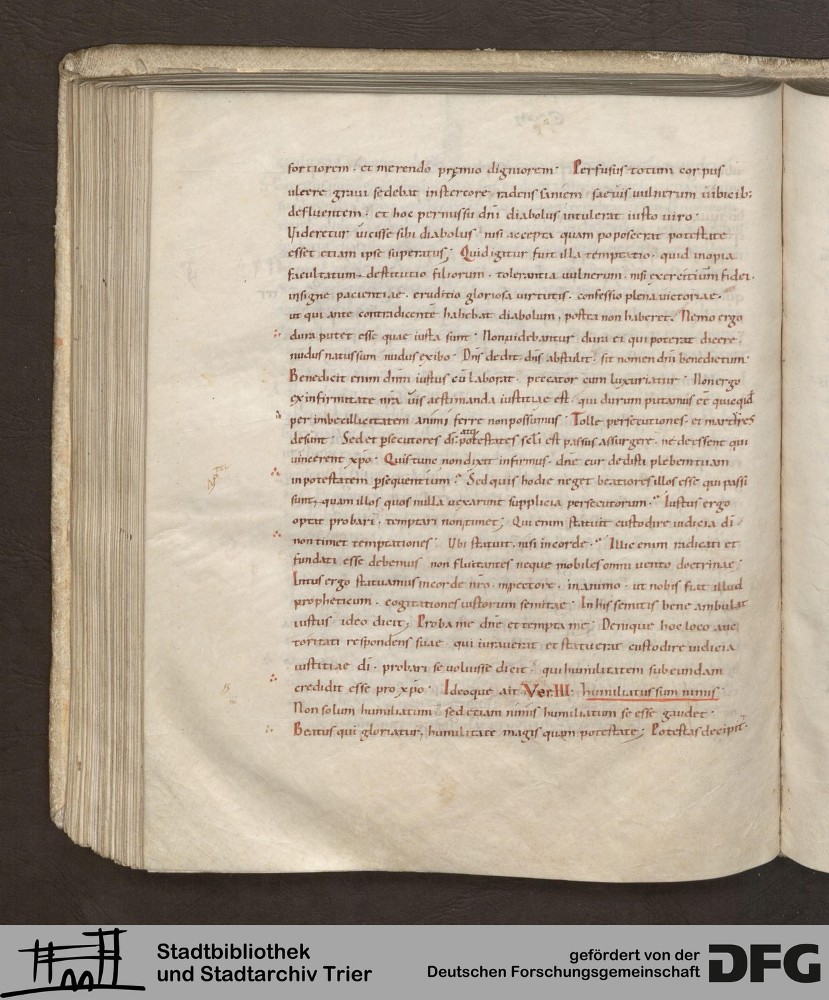 fortiorem · et merendo premio digniorem · Perfusus totum corpus
ulcere graui sedebat in stercore radens saniem saeuis uulnerum uibicib;
defluentem · et hoc permissu dni diabolus intulerat iusto uiro ·
Uideretur uicisse sibi diabolus nisi accepta quam poposcerat potestate
esset etiam ipse superatus; Quid igitur fuit illa temptatio · quid inopia
facultatum · destitutio filiorum · tolerantia uulnerum · nisi exercitium fidei ·
insigne pacientiae · eruditio gloriosa uirtutis · confessio plena uictoriae ·
ut qui ante contradicente habebat diabolum, postea non haberet. Nemo ergo
dura putet esse quae iusta sunt · Non uidebantur dura ei qui poterat dicere
nudus natus sum nudus exibo · Dns dedit dns abstulit · sit nomen dni benedictum ·
Benedicit enim dnm iustus cu laborat · peccator cum luxuriatur · Non ergo
ex infirmitate nra uis aestimanda iustitiae est · qui durum putamus ee quicqd
per imbecillitatem animi ferre non possumus · Tolle persecutiones · et martires
desunt · Sed et psecutores di atq potestates scli est passus assurgere · ne deessent qui
uincerent xpo · Quis tunc non dixit infirmus · dne cur dedisti plebem tuam
in potestatem psequentium · Sed quis hodie neget beatiores illos esse qui passi
sunt, quam illos quos nulla uexarunt supplicia persecutorum · Iustus ergo
optat probari, temptari non timet; Qui enim statuit custodire iudicia di
non timet temptationes · Ubi statuit · nisi in corde · Illic enim radicati et
fundati esse debemus non fluitantes neque mobiles omni uento doctrinae;
Intus ergo statuamus in corde nro · in pectore · in animo · ut nobis fiat illud
propheticum · cogitationes iustorum semitae · In his semitis bene ambulat
iustus ideo dicit; Proba me dne et tempta me; Denique hoc loco auc
toritati respondens suae · qui iurauerat et statuerat custodire iudicia
iustitiae di · probari se uoluisse dicit · qui humilitatem subeundam
credidit esse pro xpo · Ideoque ait Ver III · humiliatus sum nimis ·
Non solum humiliatum sed etiam nimis humiliatum se esse gaudet ·
Beatus qui gloriatur, humilitate magis quam potestate; Potestas decipit ·
Stadtbibliothek
und Stadtarchiv Trier
gefördert von der
Deutschen Forschungsgemeinschaft
DFG